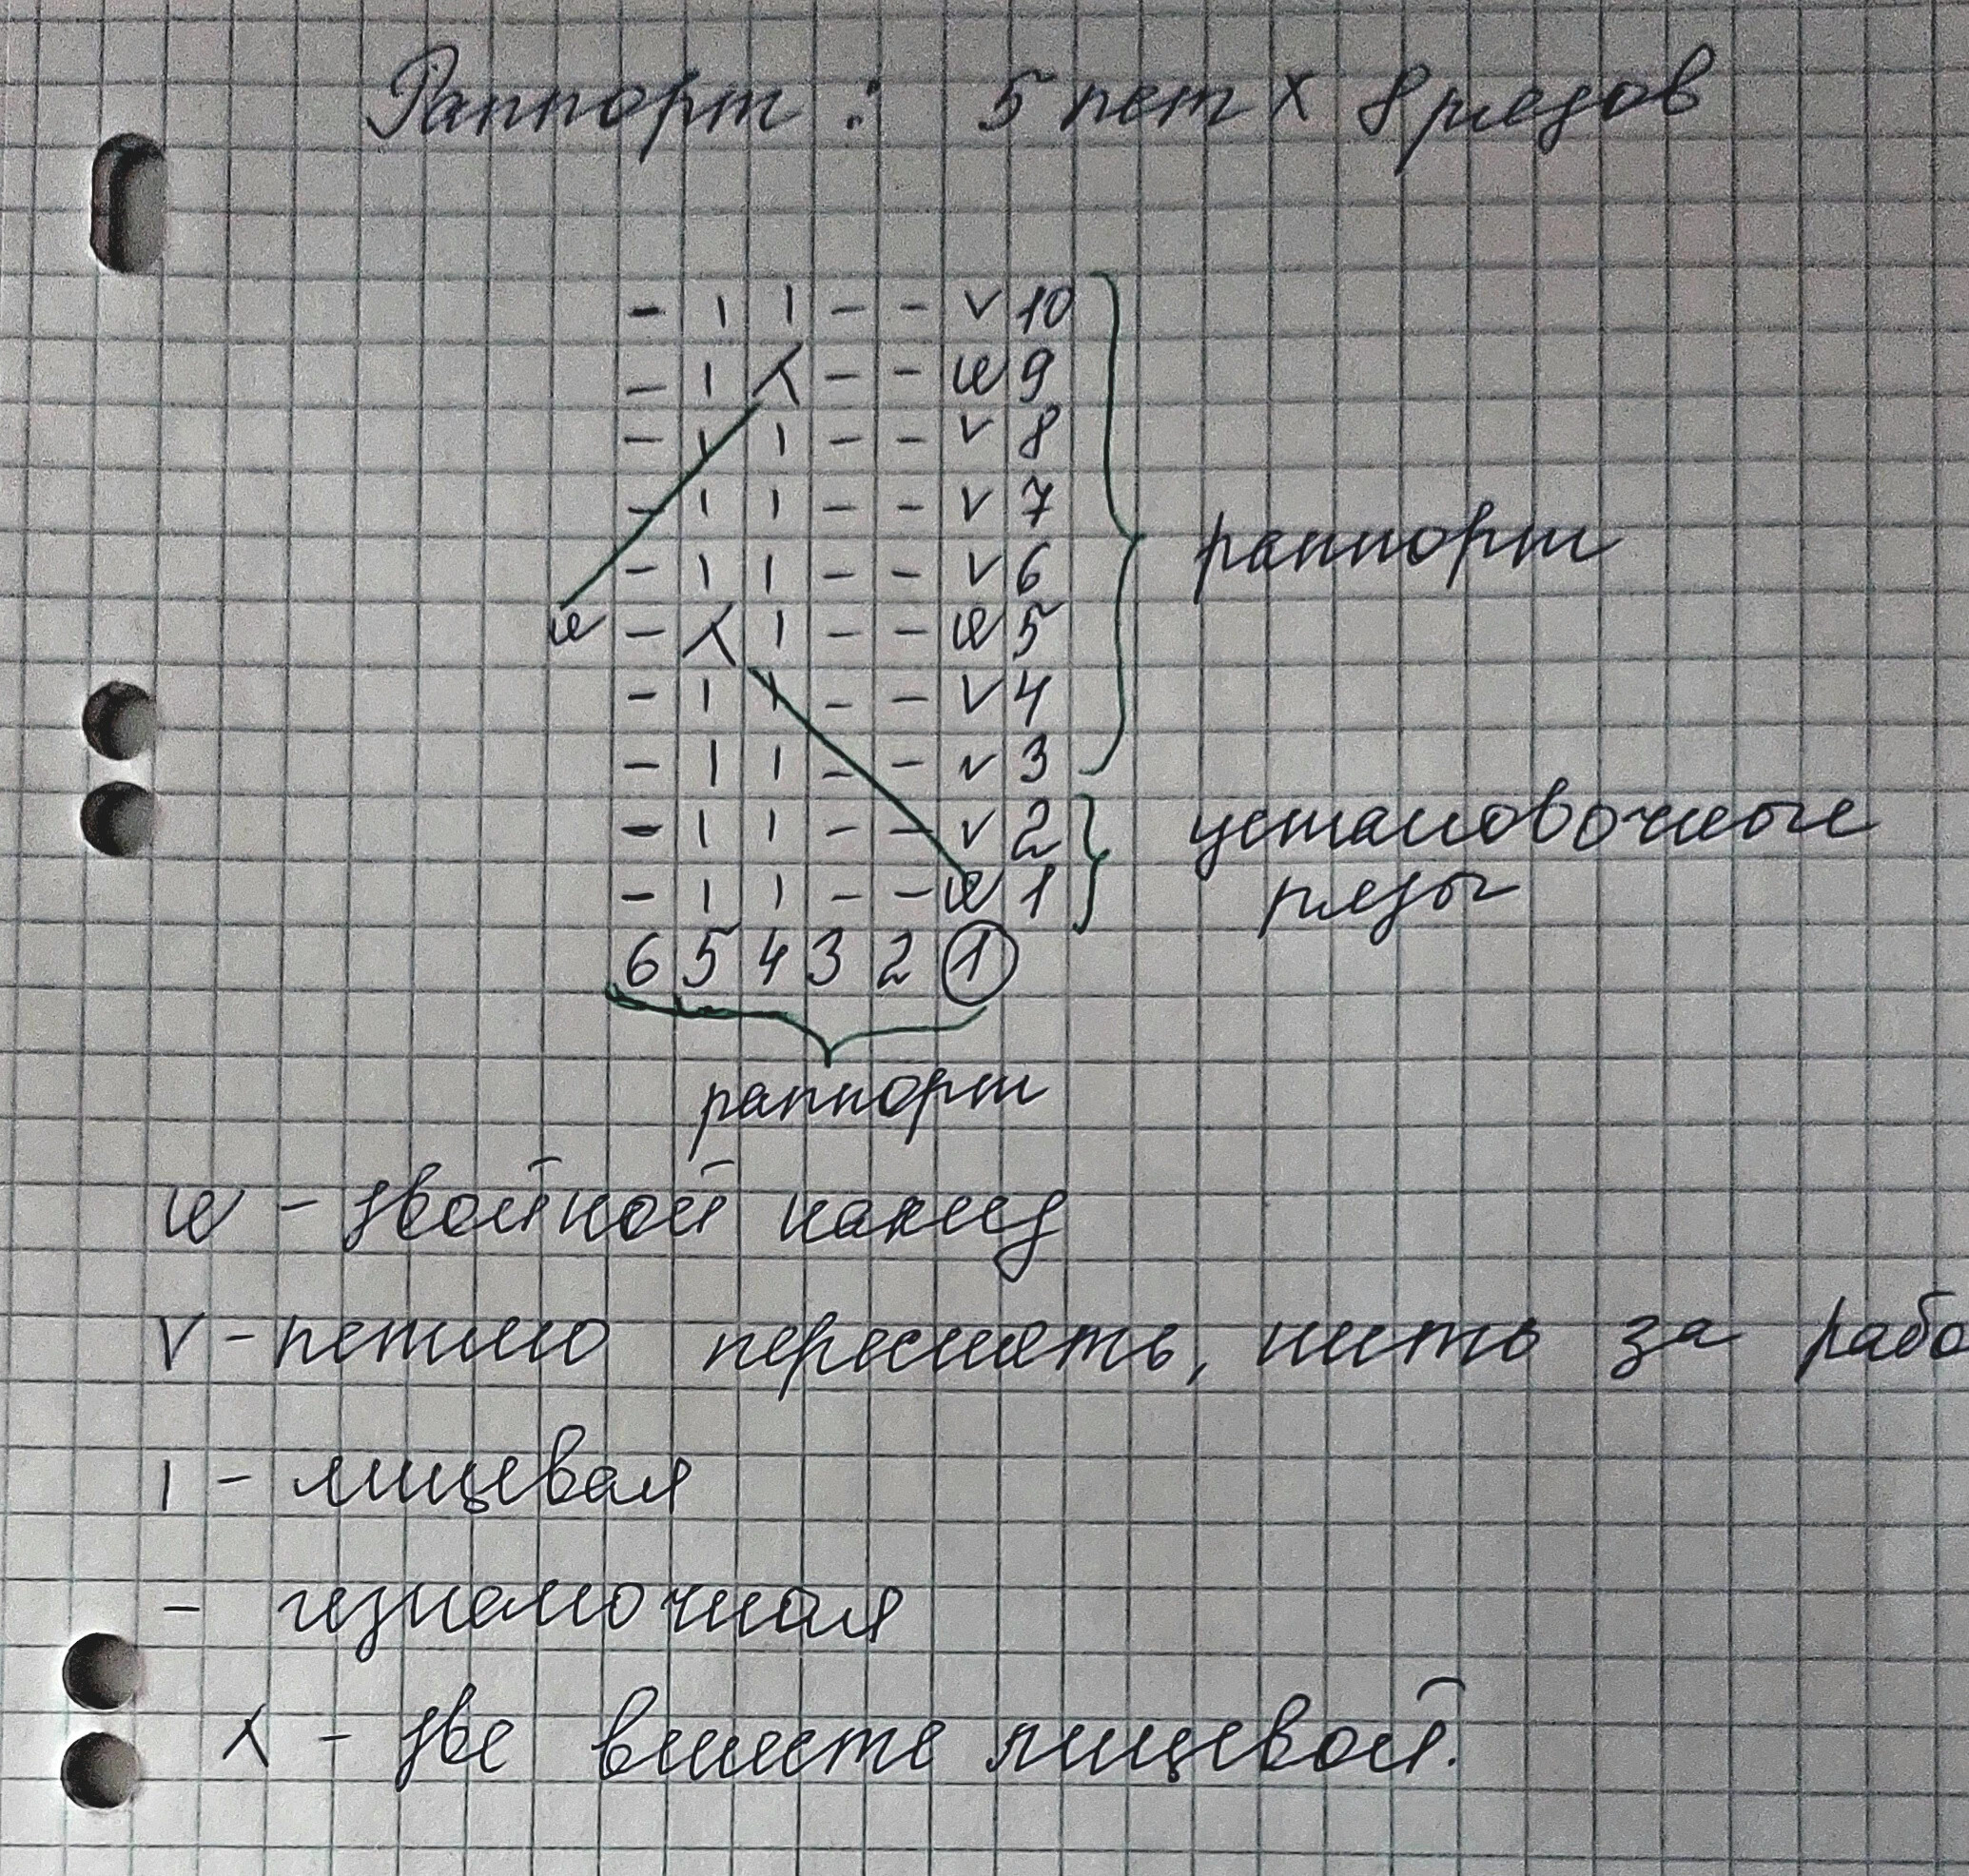 Раппорт : 5 пет х 8 рядов
- I I - - V 10
- I λ - - ve 9
- I I - - V 8
- I I - - V 7
- I I - - V 6
раппорт
ve - λ I - - ve 5
- I I - - V 4
- I I - - V 3
- I I - - V 2
установочные
- I I - - ve 1
ряды
6 5 4 3 2 1
раппорт
ve - двойной накид
V - петлю переснять, нить за рабо
I - лицевая
- изнаночная
λ - две вместе лицевой.